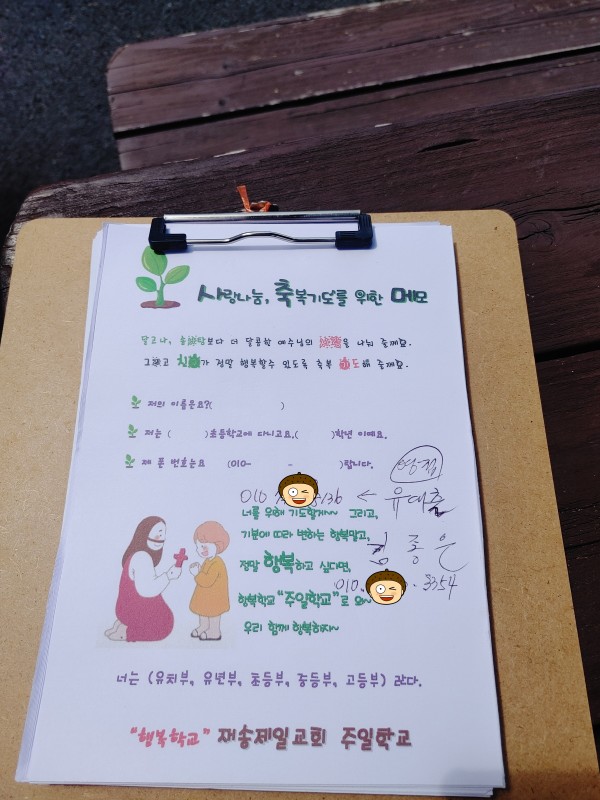 사랑나눔, 축복기도를 위한 메모
달고나, 솜사탕보다 더 달콤한 예수님의 사랑을 나눠 줄께요.
그리고 친구가 정말 행복할수 있도록 축복 기도해 줄께요.
저의 이름은요?( )
저는 ( )초등학교에 다니고요,( )학년 이예요.
제 폰 번호는요 (010- - )랍니다.
010 36 ← 유대출
너를 위해 기도할게~~ 그리고,
기분에 따라 변하는 행복말고,
정말 행복하고 싶다면,
김종은
010. . 3354
행복학교 "주일학교"로 와~
우리 함께 행복하자~
너는 (유치부, 유년부, 초등부, 중등부, 고등부) 란다.
"행복학교" 재송제일교회 주일학교